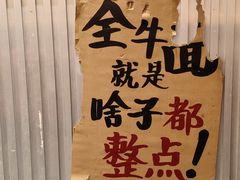 全牛面
就是
啥子都
整点!